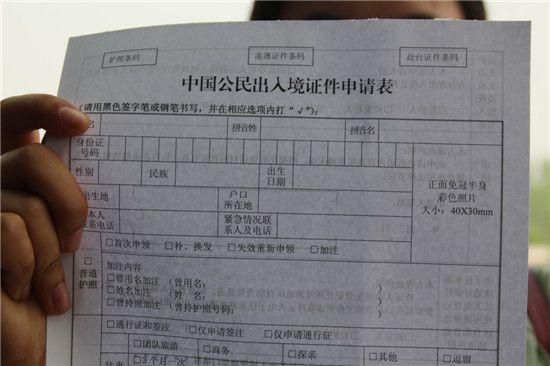 护照条码 港澳证件条码 赴台证件条码
中国公民出入境证件申请表
(请用黑色签字笔或钢笔书写，并在相应选项内打“√”):
名 拼音姓 拼音名
身份证
号码
性别 民族 出生
日期
正面免冠半身
彩色照片
大小：40X30mm
出生地 户口
所在地
本人
联系电话 紧急情况联
系人及电话
普通
护照
□首次申领 □补、换发 □失效重新申领 □加注
加注内容
□曾用名加注（曾用名：
□姓名加注（姓 名：
□曾持照加注（曾持护照号码： ）
□通行证和签注 □仅申请签注 □仅申请通行证
往来 □团队旅游 □商务 □探亲 □其他 □逗留
□3个月一次